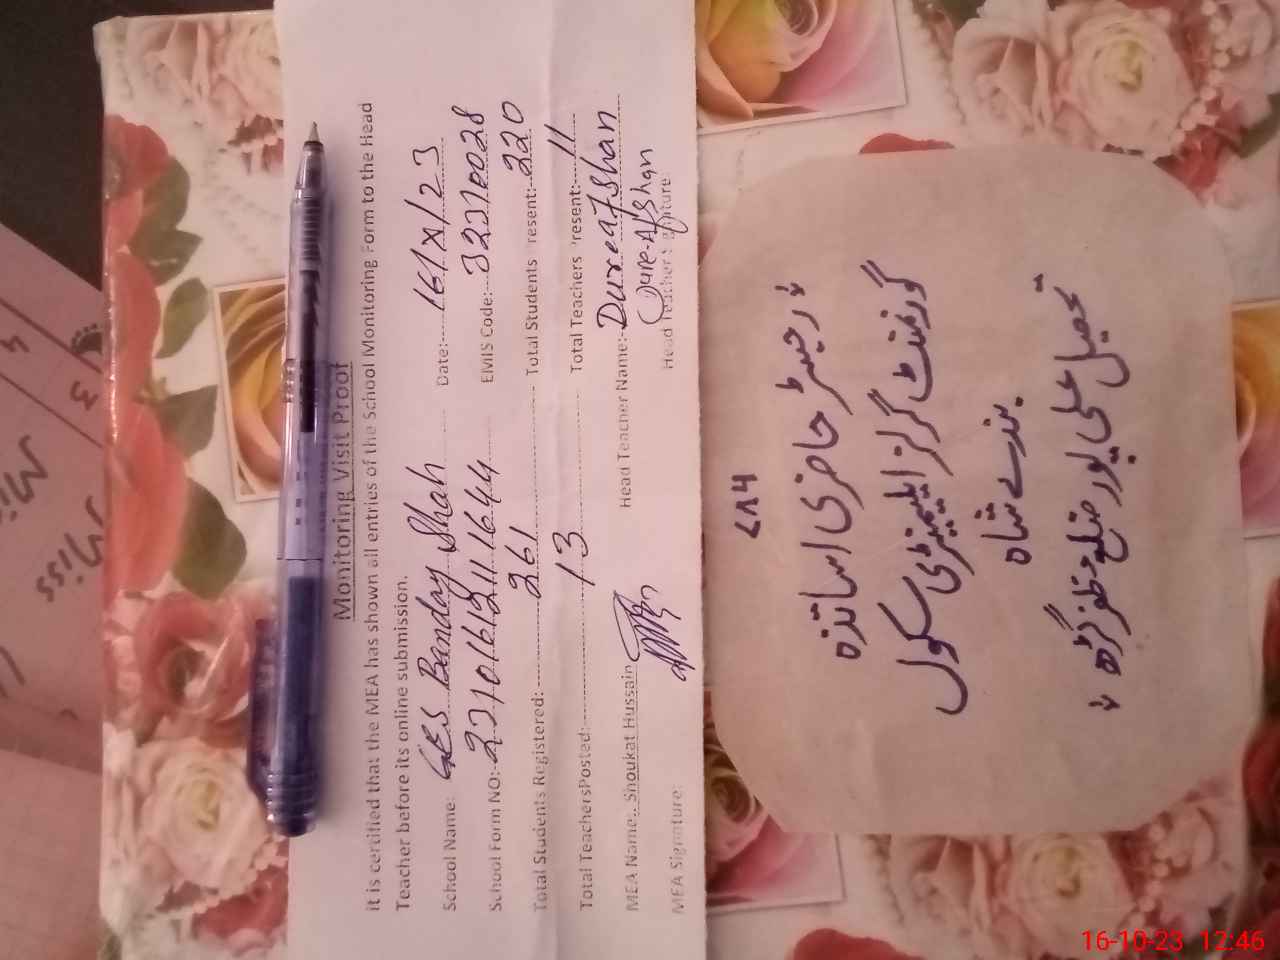 Monitoring Visit Proof
It is certified that the MEA has shown all entries of the School Monitoring Form to the Head
Teacher before its online submission.
School Name: GES Banday Shah Date: 16/X/23
School Form NO: 22101612111644 EMIS Code: 32210028
Total Students Registered: 261 Total Students Present: 220
Total TeachersPosted: 13 Total Teachers Present: 11
MEA Name: Shoukat Hussain Head Teacher Name: Dureafshan
MEA Signature: Head Teacher Signature: Dure-Afshan
۷۸۶
رجسٹر حاضری اساتذہ
گورنمنٹ گرلز ایلیمنٹری سکول
بندے شاہ
تحصیل علی پور ضلع مظفر گڑھ
Miss
Mi
3
4
16-10-23 12:46